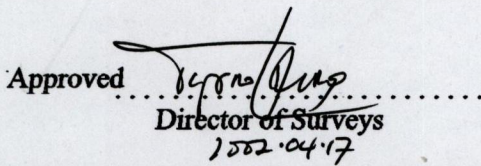 Approved
Director of Surveys
2002.04.17